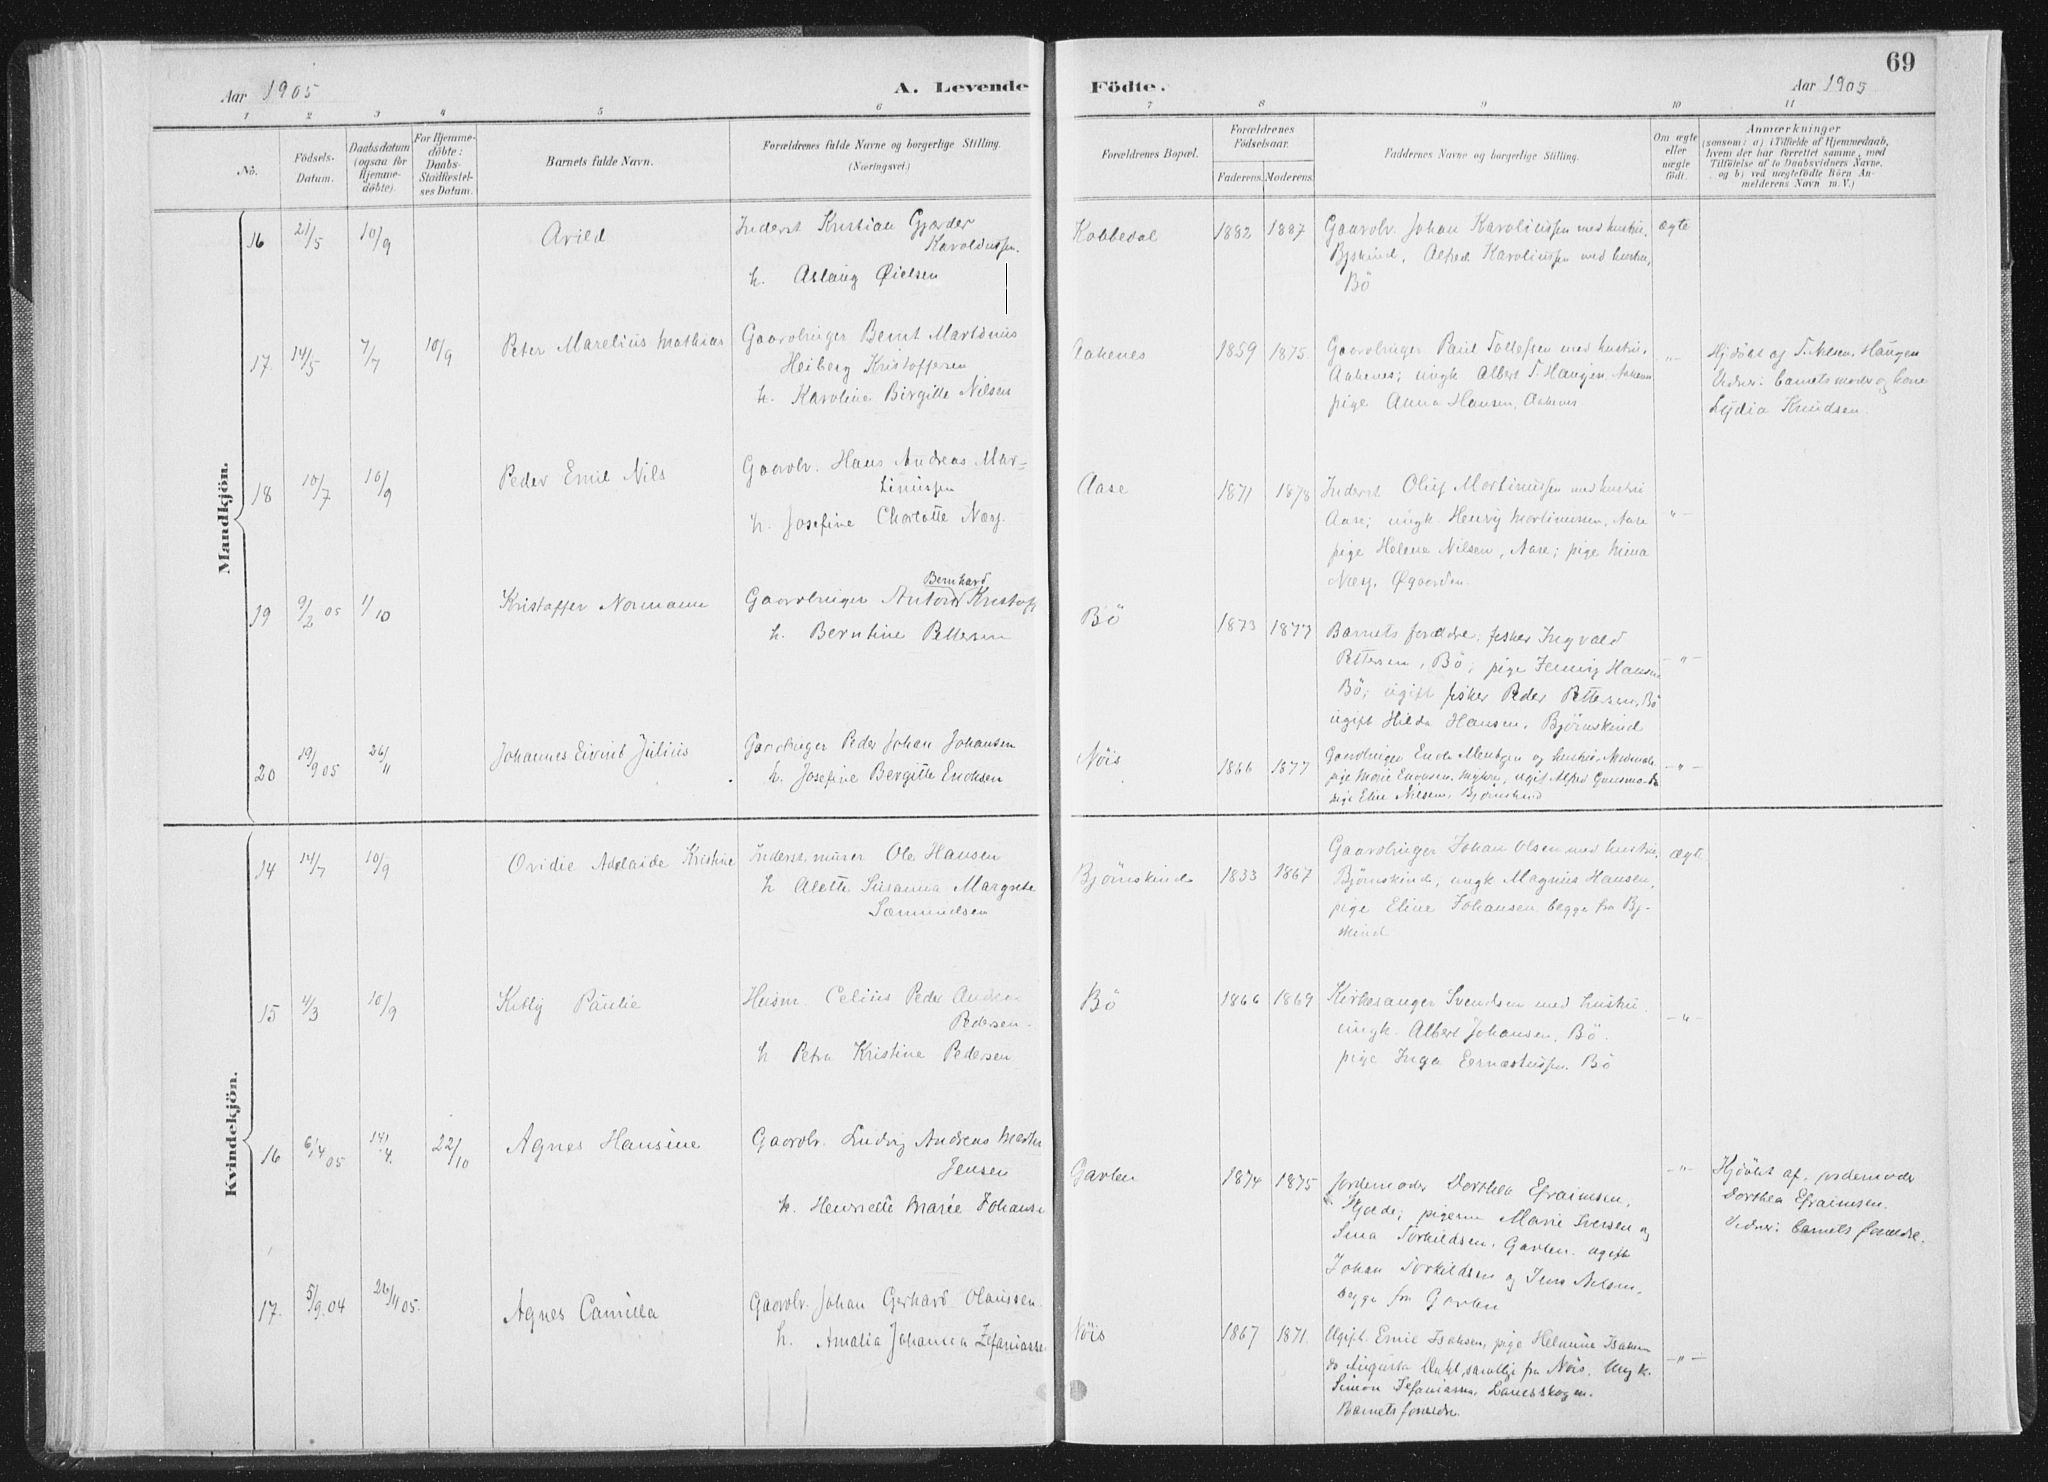 Aar 1905
A. Levende
Födte.
Aar 1905
69
1 2 3 4 5 6 7 8 9 10 11
No.
Födsels-
Datum.
Daabsdatum
(ogsaa for
Hjemme-
döbte).
For Hjemme-
döbte:
Daabs-
Stadfæstel-
ses Datum.
Barnets fulde Navn.
Forældrenes fulde Navne og borgerlige Stilling.
(Næringsvei.)
Forældrenes Bopæl.
Forældrenes
Födselsaar.
Faderens. Moderens.
Faddernes Navne og borgerlige Stilling.
Om ægte
eller
uægte
födt.
Anmærkninger
(saasom: a) i Tilfælde af Hjemmedaab,
hvem der har forrettet samme, med
Tilföielse af to Daabsvidners Navne,
og b) ved uægtefödte Börn An-
melderens Navn m. V.)
Mandkjön.
16 21/5 10/9 Arild
Inderst Kristian Gjærder
Karoldussen.
h. Aslaug Øielsen
Kobbedal 1882 1887
Gaardbr. Johan Karoliussen med hustru,
Bjskind, Alfred Karoliussen med hustru,
Bö
ægte
17. 14/5 7/7 10/9 Peter Marelius Mathias
Gaardbruger Bernt Martinus
Heiberg Kristoffersen
h. Karoline Birgitte Nilsen
Aakenes 1859 1875.
Gaardbruger Paul Tollefsen med hustru,
Aakenes; ungk Albert T. Haugen, Aakenes
pige Anna Hansen, Aakenes
-"-
Hjdöbt af T. Nilsen, Haugen
Vidner: barnets moder og kone
Lydia Knudsen.
18 10/7 10/9 Peder Emil Nils
Gaardbr. Hans Andreas Mar-
tinussen
h. Josefine Charlotte Næsj.
Aase 1871 1878
Inderst Oluf Martinussen med hustru
Aase; ungk. Henrig Martinussen, Aase
pige Helena Nilsen, Aase; pige Mina
Næsj, Øgaarden.
"-
19 9/2 05 1/10 Kristoffer Normann
Gaardbruger Anton Bernhard Kristoff
h. Berntine Pettersen
Bö 1873 1877
Barnets forældre; fisker Ingvald
Pettersen, Bö; pige Jenny Hansen
Bö; ugift fisker Peder Pettersen, Bö
ugift Hilda Hansen, Bjørnskind
-"-
20 19/9 05 26/11 Johannes Eivind Julius
Gaardbruger Peder Johan Johansen
h. Josefine Bergitte Enoksen
Nöis 1866 1877
Gaardbruger og hustru,
pige Marie ugift Alfred
pige Eline Nilsen, Bjørnskind
-"-
Kvindekjön.
14 14/7 10/9 Ovidie Adelaide Kristine
Inderst, murer Ole Hansen
h Alette Susanna Margrete
Sæmundsen
Bjömskind 1833 1867
Gaardbruger Johan Olsen med hustru,
Björnskind, ungk Magnus Hansen,
pige Eline Johansen begge fra Bj-
skind
ægte
15 4/3 10/9 Kitty Paulie
Husm. Celius Peder Andreas
Pedersen.
h Petra Kristine Pedersen
Bö 1866 1869
Kirkesanger Svendsen med hustru.
ungk. Albert Johansen, Bö.
pige Inga Ernæstussen, Bö
-"-
16 6/4 05 14/4. 22/10 Agnes Hansine
Gaardbr. Ludvig Andreas Martin
Jensen
h. Henriette Marie Johanse
Gavlen 1874 1875
Jordemoder Dorthea Efraimsen,
Kjelde; pigerne Marie Iversen og
Sina Torkildsen, Gavlen. ugift
Johan Torkildsen og Jens Nilsen,
begge fra Gavlen
-"-
Hjdöbt af jordemoder
Dorthea Efraimsen.
Vidner: barnets forældre.
17. 5/9. 04 26/11 05. Agnes Camilla
Gaardbr. Johan Gerhard Olaussen.
h. Amalia Johanna Zefaniasse
Nöis 1867 1871
Ugift Emil Isaksen, pige Helmine Isaksen
do Augusta Dahl, samtlige fra Nöis. Ungk.
Simon Zefaniassen, Lanesskogen.
Barnets forældre.
-"-